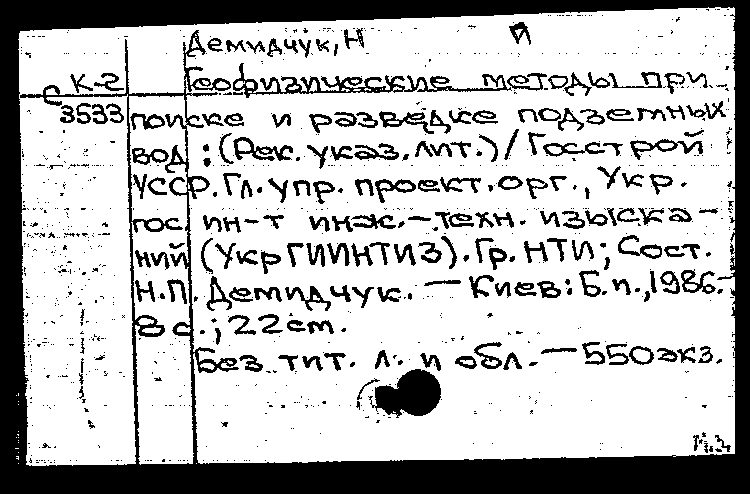 Демидчук, Н
К-2 Геофизические методы при
с 3533 поиске и разведке подземных
вод : (Рек. указ. лит.) / Госстрой
УССР. Гл. упр. проект. орг., Укр.
гос. ин-т инж.-техн. изыска-
ний (УкрГИИНТИЗ). Гр. НТИ; Сост.
Н.П. Демидчук. — Киев: Б.п., 1986.-
8 с.; 22 см.
Без тит. л. и обл. — 550 экз.